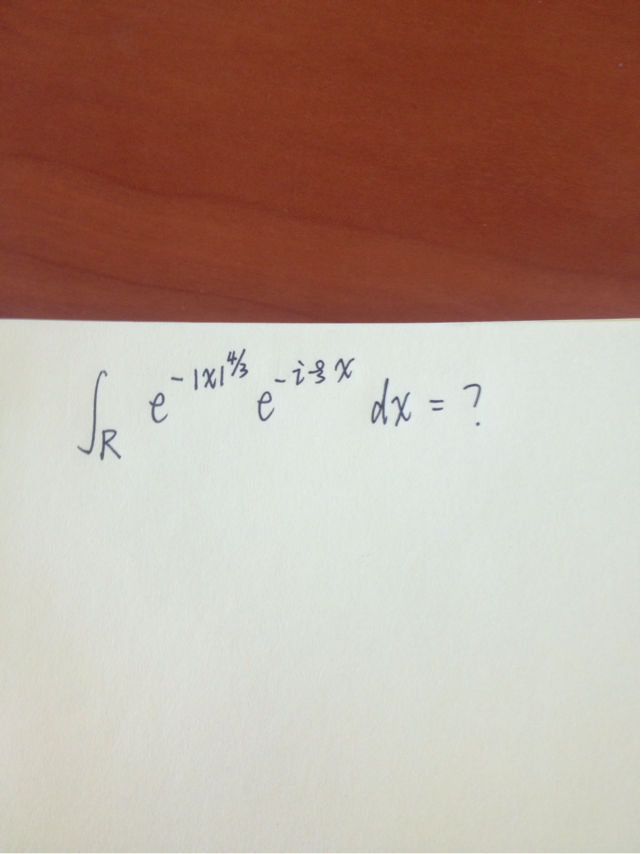 ∫_R e^{-|x|^{4/3}} e^{-iξx} dx = ?